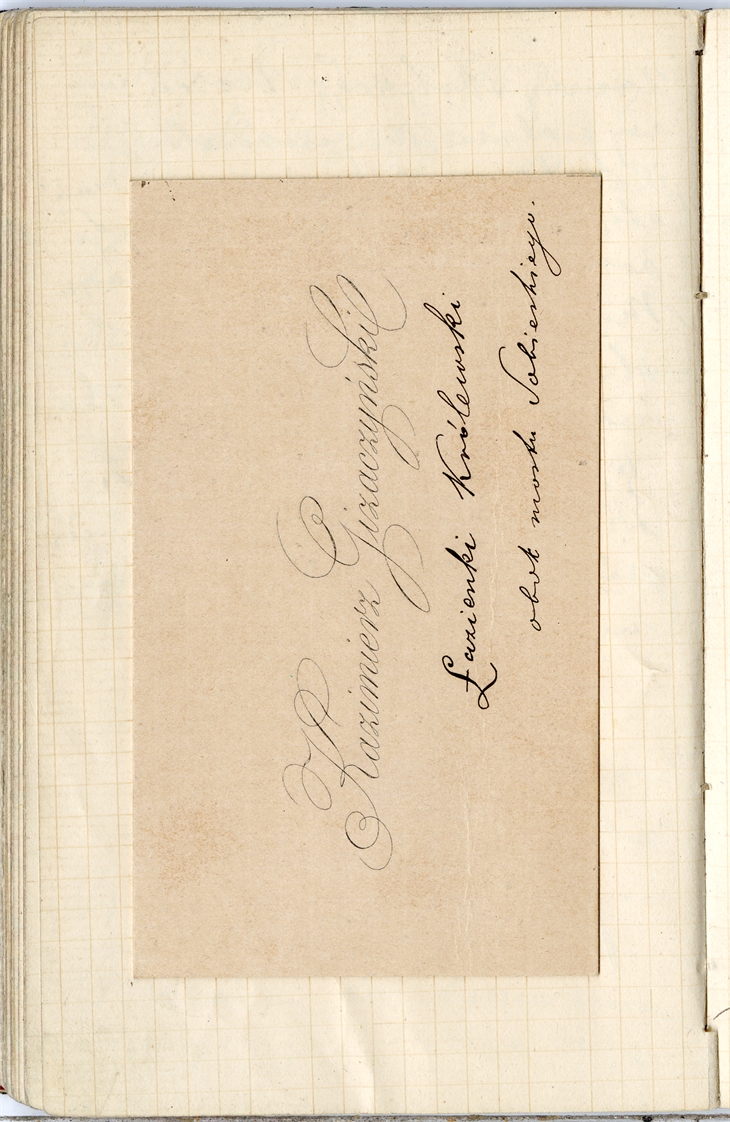 Kazimierz Gizaczyński
Łazienki Królewski
obok mostu Sobieskiego.